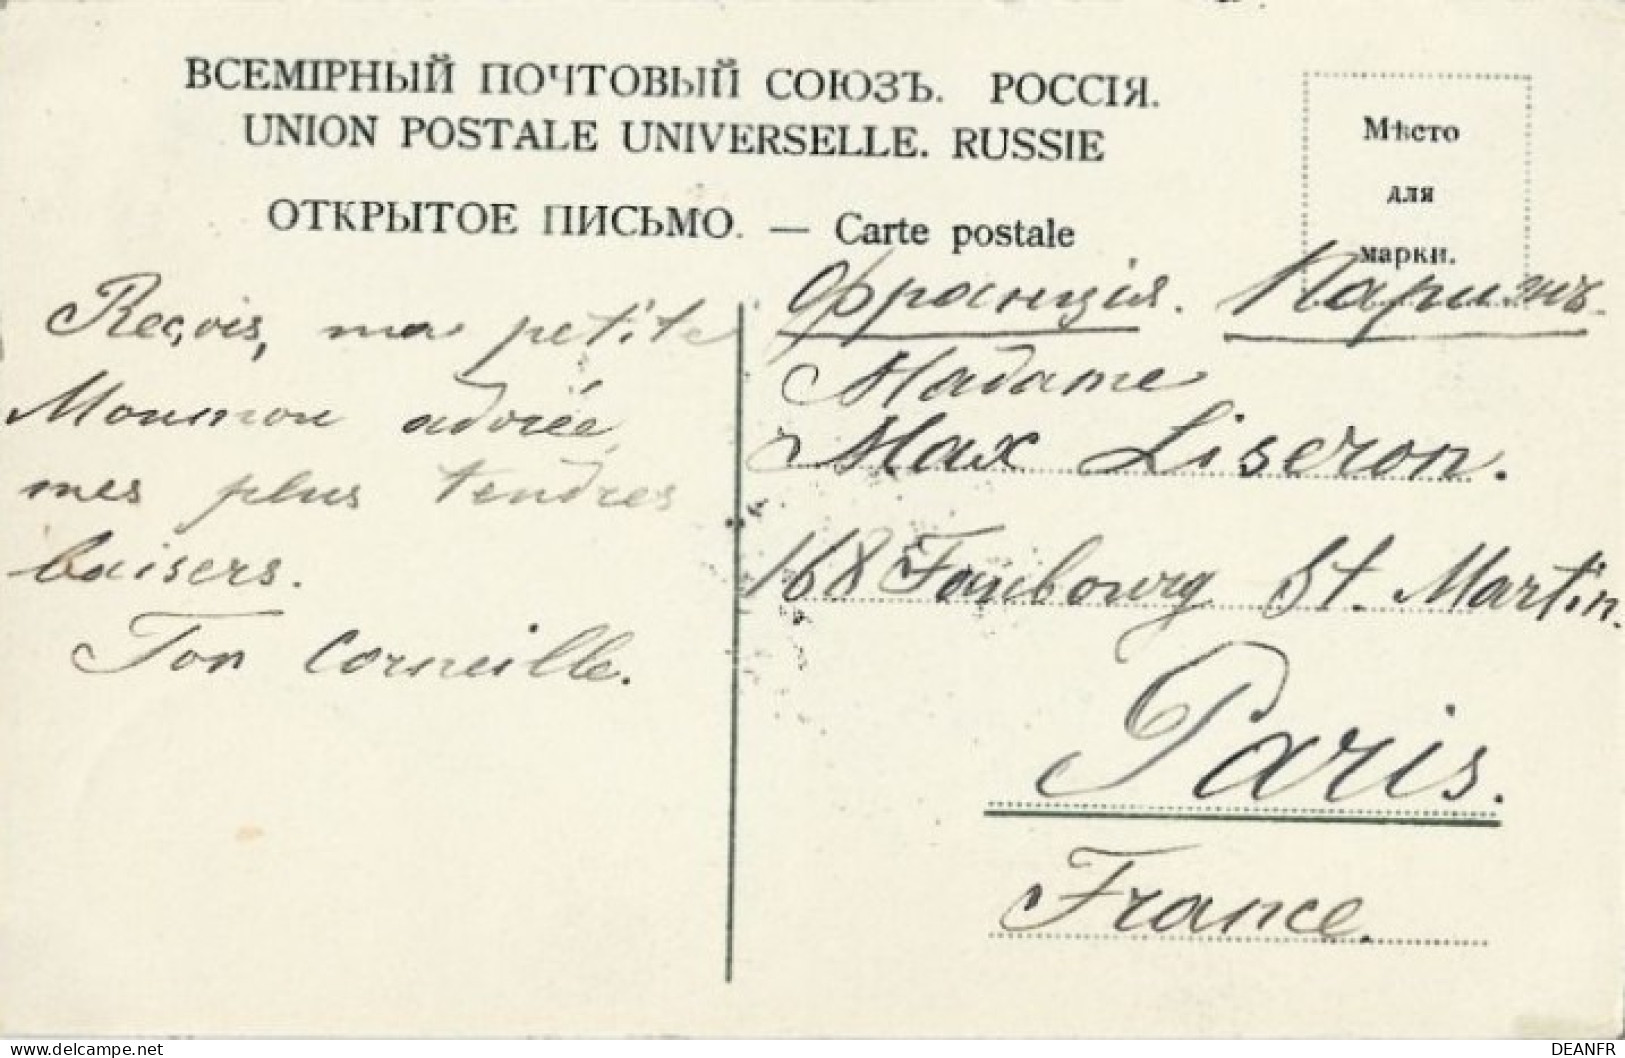 ВСЕМІРНЫЙ ПОЧТОВЫЙ СОЮЗЪ. РОССІЯ.
UNION POSTALE UNIVERSELLE. RUSSIE
ОТКРЫТОЕ ПИСЬМО. — Carte postale
Мѣсто
для
марки.
Reçois, ma petite
Moumou adorée,
mes plus tendres
baisers.
Ton Corneille.
Франція. Парижъ.
Madame
Max Liseron.
168 Faubourg St. Martin.
Paris.
France.
www.delcampe.net
DEANFR